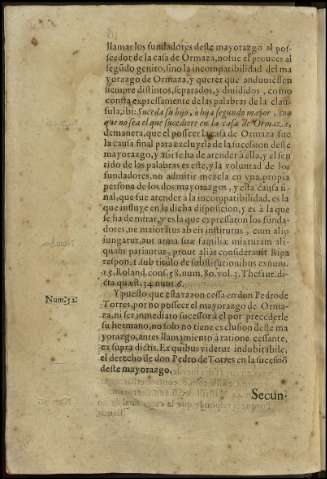 llamar los fundadores deste mayorazgo al posseedor
de la casa de Ormaza, no fue el prouecs al
segūdo genito, sino la incompatibilidad del mayorazgo
de Ormaza, y querer que anduuiessen
siempre distintos, separados, y diuididos, como
consta expressamente de las palabras de la clausula,
ibi: Suceda su hijo, o hija segundo mayor, cō
que no sea el que sucediere en la casa de Ormaza,
de manera, que el posseer la casa de Ormaza fue
la causa final para excluyrla de la sucession deste
mayorazgo, y assi se ha de atender à ella, y el sentido
de las palabras es este, y la voluntad de los
fundadores, no admitir mezcla en vna propia
persona de los dos mayorazgos, y esta causa final,
que fue atender a la incompatibilidad, es la
que influye en la dicha disposicion, y es à la que
se ha de mirar, y es la que expressaron los fundadores,
ne maioratus ab eis institutus, cum alio
iungatur, aut arma suæ familiæ mixturam aliquam
patiantur, prout aliàs considerauit Ripa
respons. 1. sub titulo de substitutionibus ex num.
15. Roland. cons. 58. num. 80. vol. 3. Thesaur. dicta
quæst. 34. num. 6.
Num. 52. Y puesto que esta razon cessa en don Pedro de
Torres, por no posseer el mayorazgo de Ormaza,
ni ser inmediato sucessor à el por precederle
su hermano, no solo no tiene exclusion deste mayorazgo,
antes llamamiento à ratione cessante,
ex supra dictis. Ex quibus videtur indubitabile,
el derecho de don Pedro de Torres en la sucesiō
deste mayorazgo.
Secun-